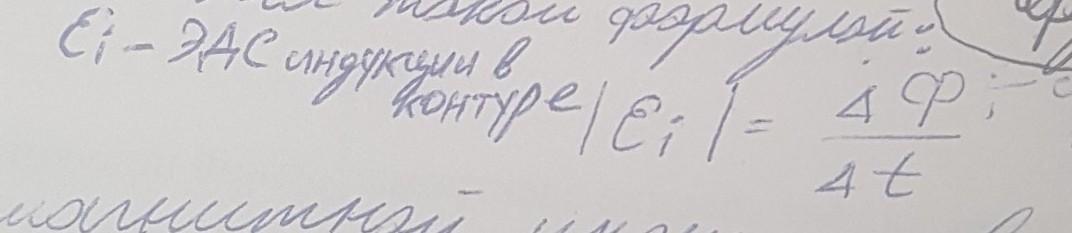 такой формулой:
Ɛi – ЭДС индукции в
контуре |Ɛi| = ΔФ / Δt ;
магнитной